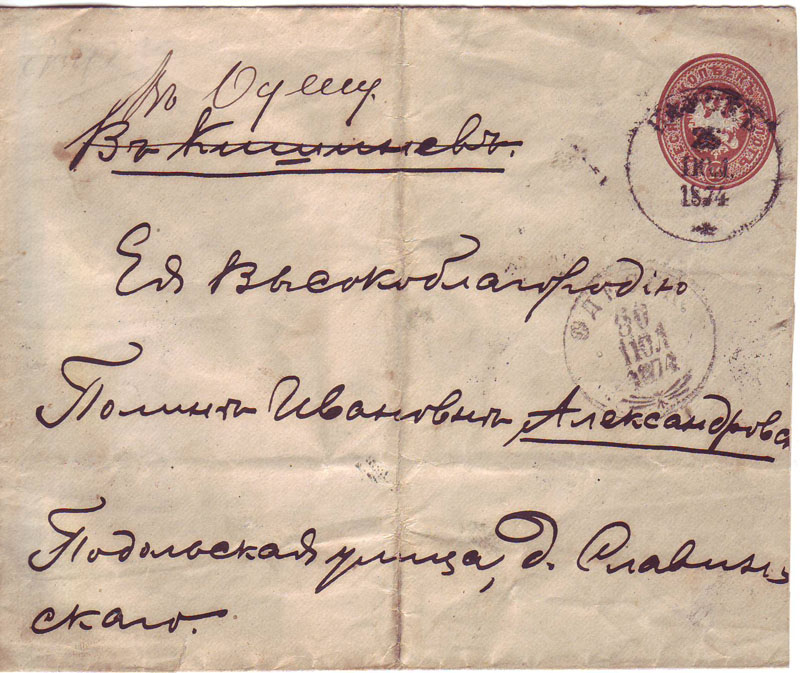 Въ Одессу.
Въ Кишиневъ.
25
ІЮЛ.
1874
Ея Высокоблагородію
30
ІЮЛ
1874
Полинѣ Ивановнѣ Александровс
Подольская улица, д. Славин
скаго.